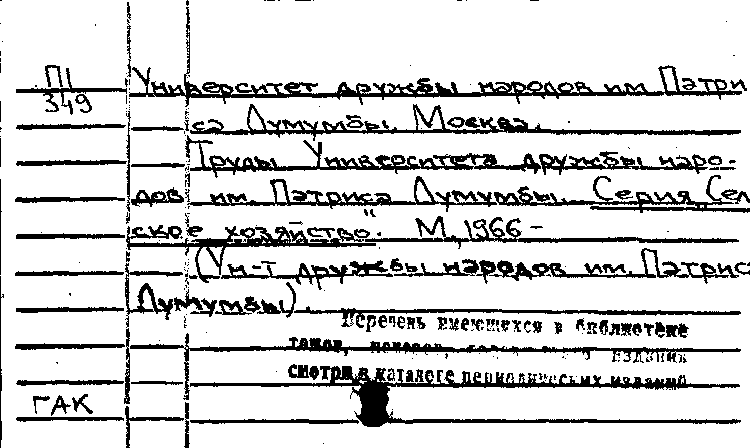 П1
349
Университет дружбы народов им Патри
са Лумумбы. Москва.
Труды Университета дружбы наро-
дов им. Патриса Лумумбы. Серия „Сель
ское хозяйство“. М., 1966 –
(Ун-т дружбы народов им. Патриса
Лумумбы).
Перечень имеющихся в библиотеке
томов, номеров, издания
смотри в каталоге периодических изданий
ГАК